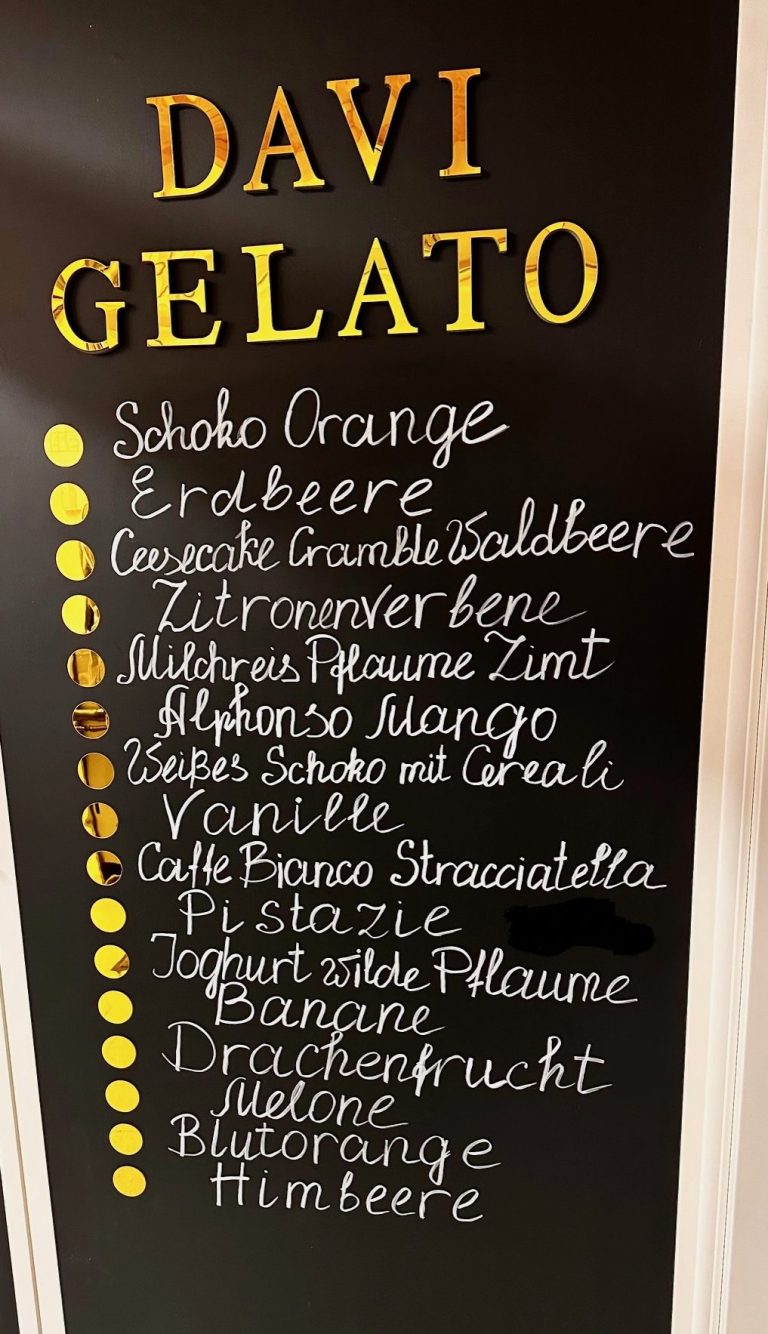 DAVI
GELATO
Schoko Orange
Erdbeere
Ceesecake Cramble Waldbeere
Zitronenverbene
Milchreis Pflaume Zimt
Alphonso Mango
Weißes Schoko mit Cereali
Vanille
Caffe Bianco Stracciatella
Pistazie
Joghurt wilde Pflaume
Banane
Drachenfrucht
Melone
Blutorange
Himbeere